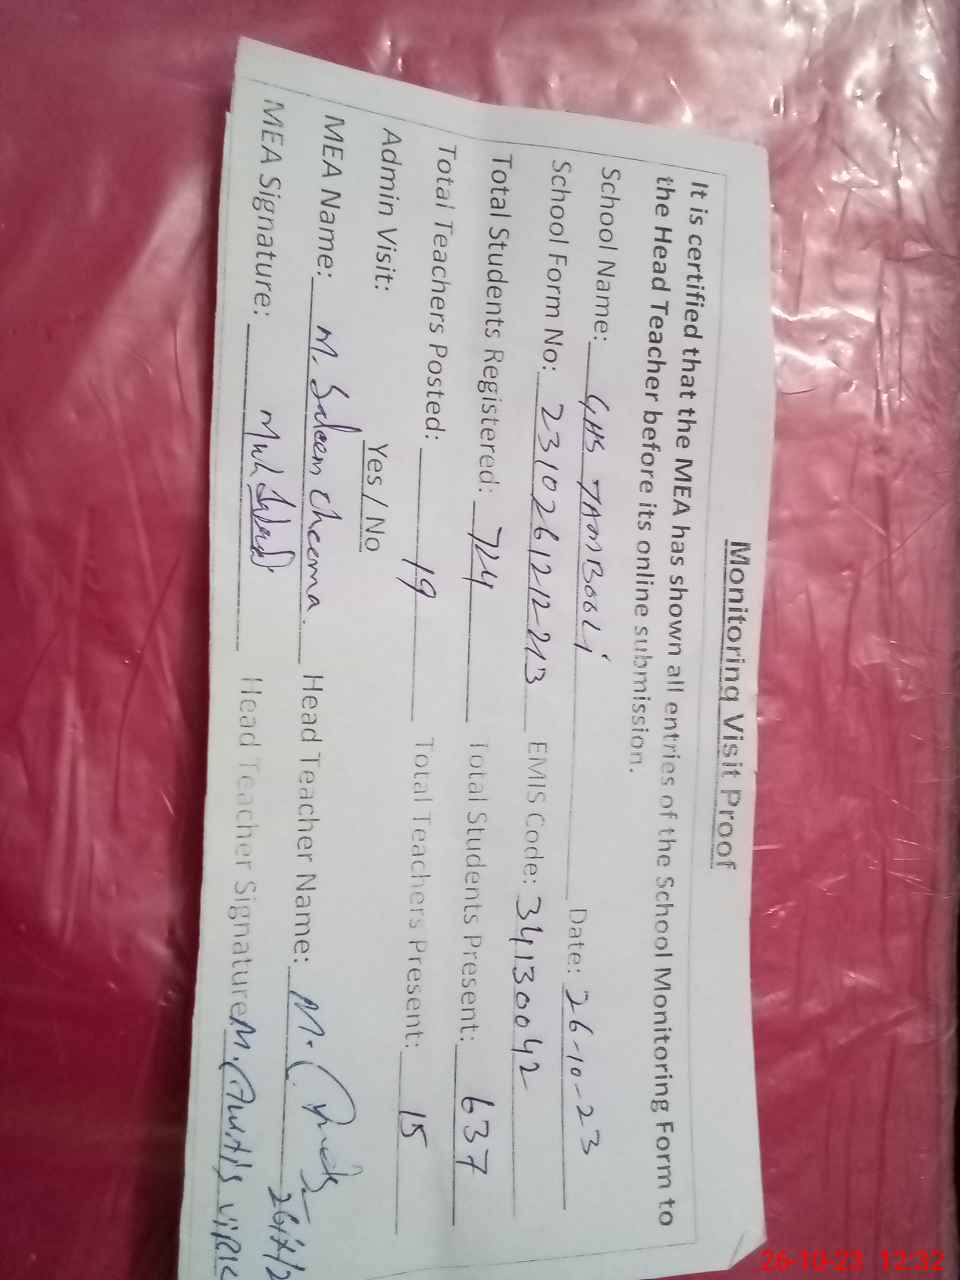 Monitoring Visit Proof
It is certified that the MEA has shown all entries of the School Monitoring Form to
the Head Teacher before its online submission.
School Name: GHS JAMBOOLi Date: 26-10-23
School Form No: 2310261212-213 EMIS Code: 34130042
Total Students Registered: 724 Total Students Present: 637
Total Teachers Posted: 19 Total Teachers Present: 15
Admin Visit: Yes / No
MEA Name: M. Saleem Cheema. Head Teacher Name: M.
MEA Signature: Head Teacher Signature M. VIRK
26-10-23 12:32